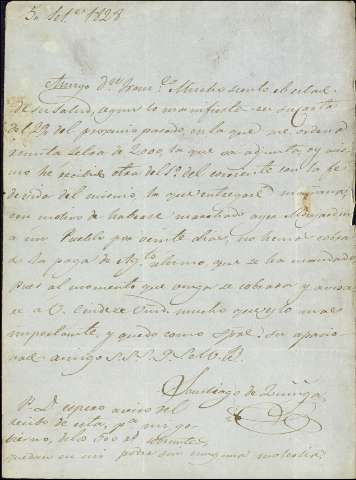 5 Set.re 1828
Amigo Dn. Fran.co Mucho siento el estado
de su salud, según lo manifiesta en su carta
del 29 del proximo pasado, en la que me ordena
remita letra de 2000, la que va adjunta, oy mis
mo he recibido otra del 1º del corriente con la fe
de vida del mismo, la que entregaré mañana;
con motivo de haberse marchado ayer
a un Pueblo por veinte dias, no hemos cobra
do la paga de Ag.to ultimo, que se ha mandado,
pues al momento que venga se cobrará y avisa
ré a V. cuidese Vmd. mucho que es lo mas
importante, y quedo como spre. su apasio
nado amigo S.S.S. Q.S.M.B.
Santiago de Zuñiga
P. D. espero aviso del
recibo de esta, pa. mi go
bierno, de los 500 rs.
quedan en mi poder sin ninguna molestia.